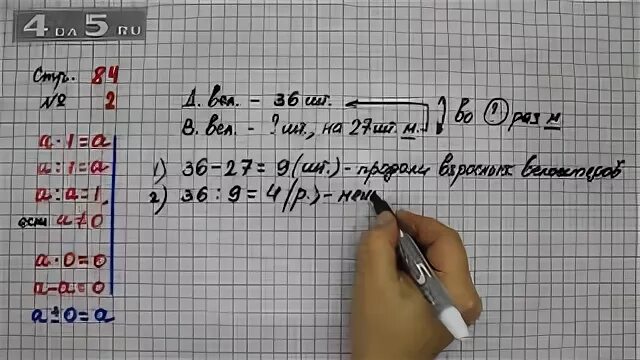 4 DA 5 RU
Стр. 84
№ 2
Д. вел. – 36 шт.
В. вел. – ? шт., на 27 шт. м.
во ? раз м
1) 36 – 27 = 9 (шт.) – продали взрослых велосипедов
2) 36 : 9 = 4 (р.) –
a · 1 = a
a : 1 = a
a : a = 1,
если a ≠ 0
a · 0 = 0
a – a = 0
a ± 0 = a